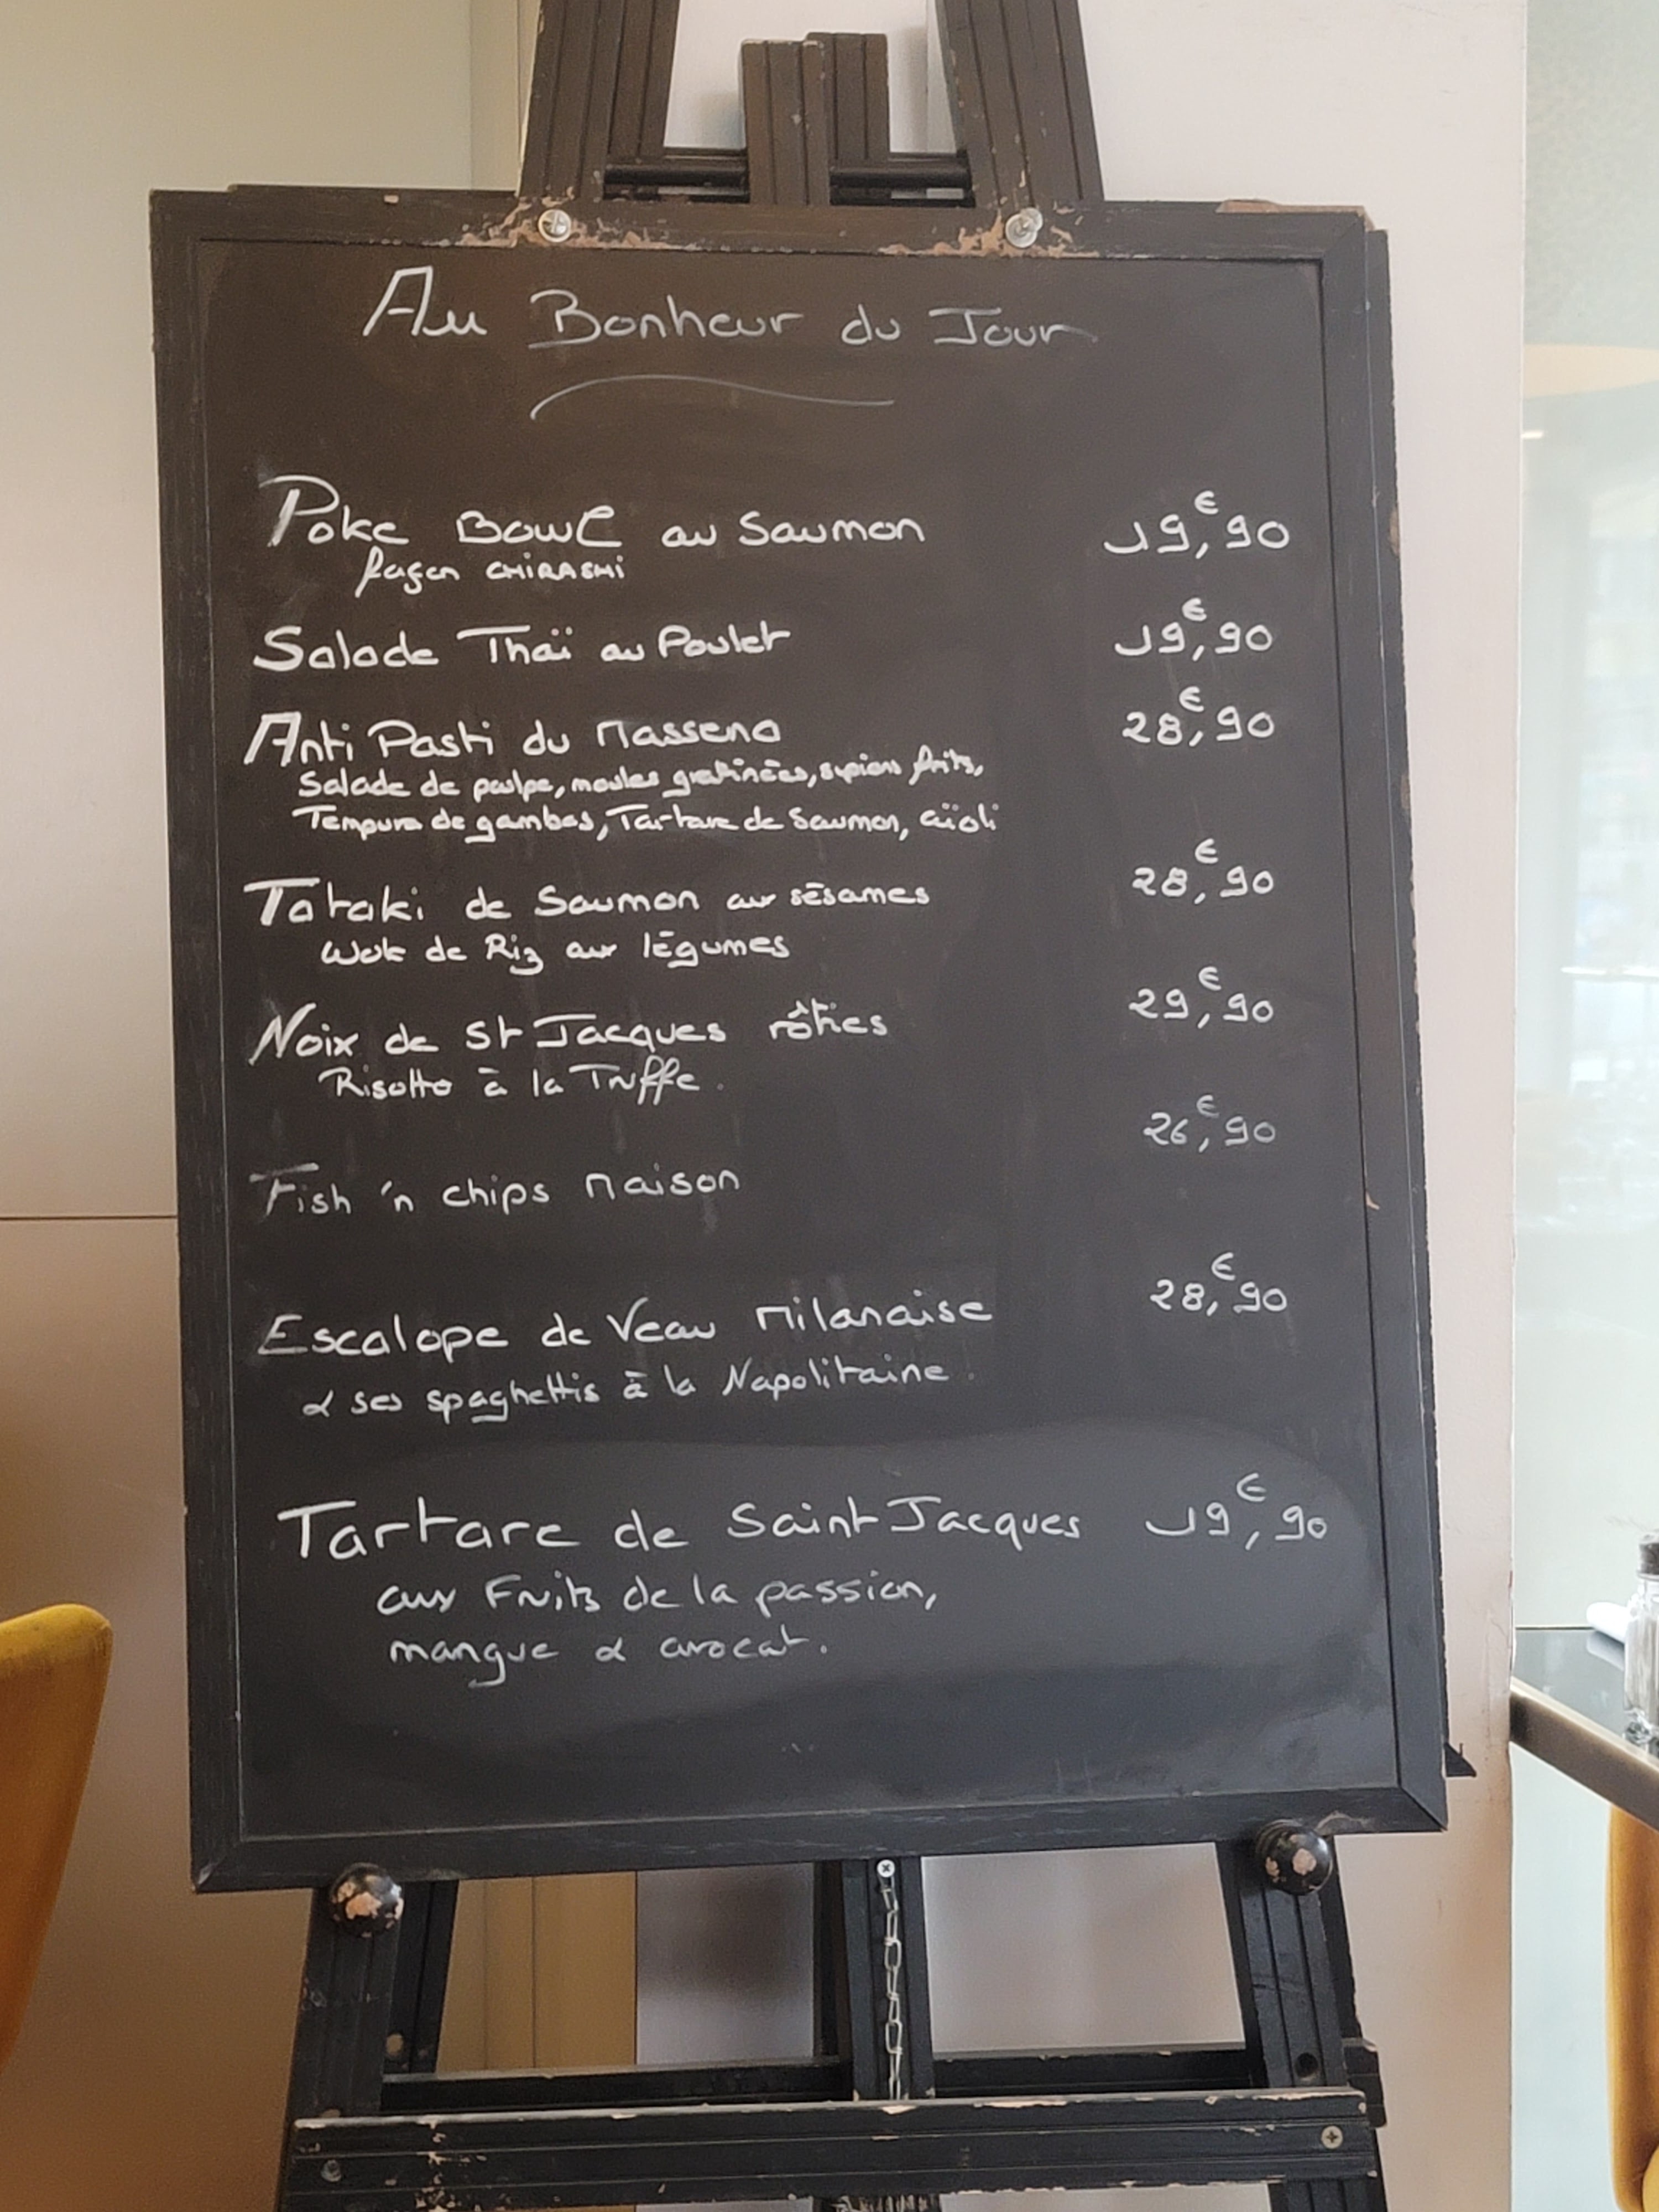 Au Bonheur du Jour
Poke Bowl au Saumon 19,€90
façon CHIRASHI
Salade Thaï au Poulet 19,€90
Anti Pasti du Massena 28,€90
Salade de poulpe, moules gratinées, supions frits,
Tempura de gambas, Tartare de Saumon, aïoli
Tataki de Saumon aux sésames 28,€90
Wok de Riz aux légumes
Noix de St Jacques rôties 29,€90
Risotto à la Truffe.
Fish 'n chips Maison 26,€90
Escalope de Veau Milanaise 28,€90
& ses spaghettis à la Napolitaine.
Tartare de Saint Jacques 19,€90
aux Fruits de la passion,
mangue & avocat.